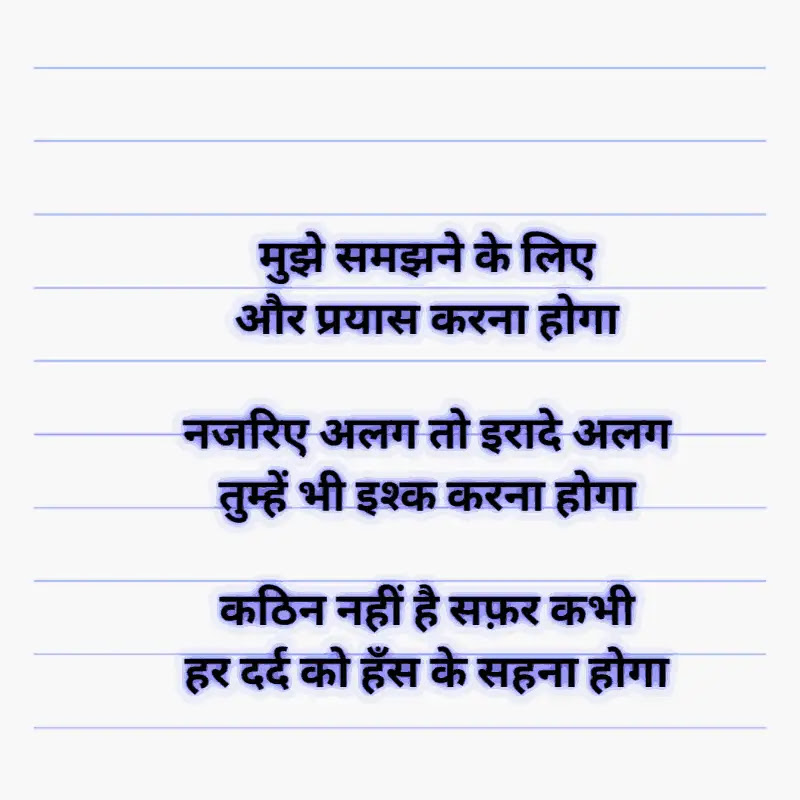 मुझे समझने के लिए
और प्रयास करना होगा
नजरिए अलग तो इरादे अलग
तुम्हें भी इश्क करना होगा
कठिन नहीं है सफ़र कभी
हर दर्द को हँस के सहना होगा